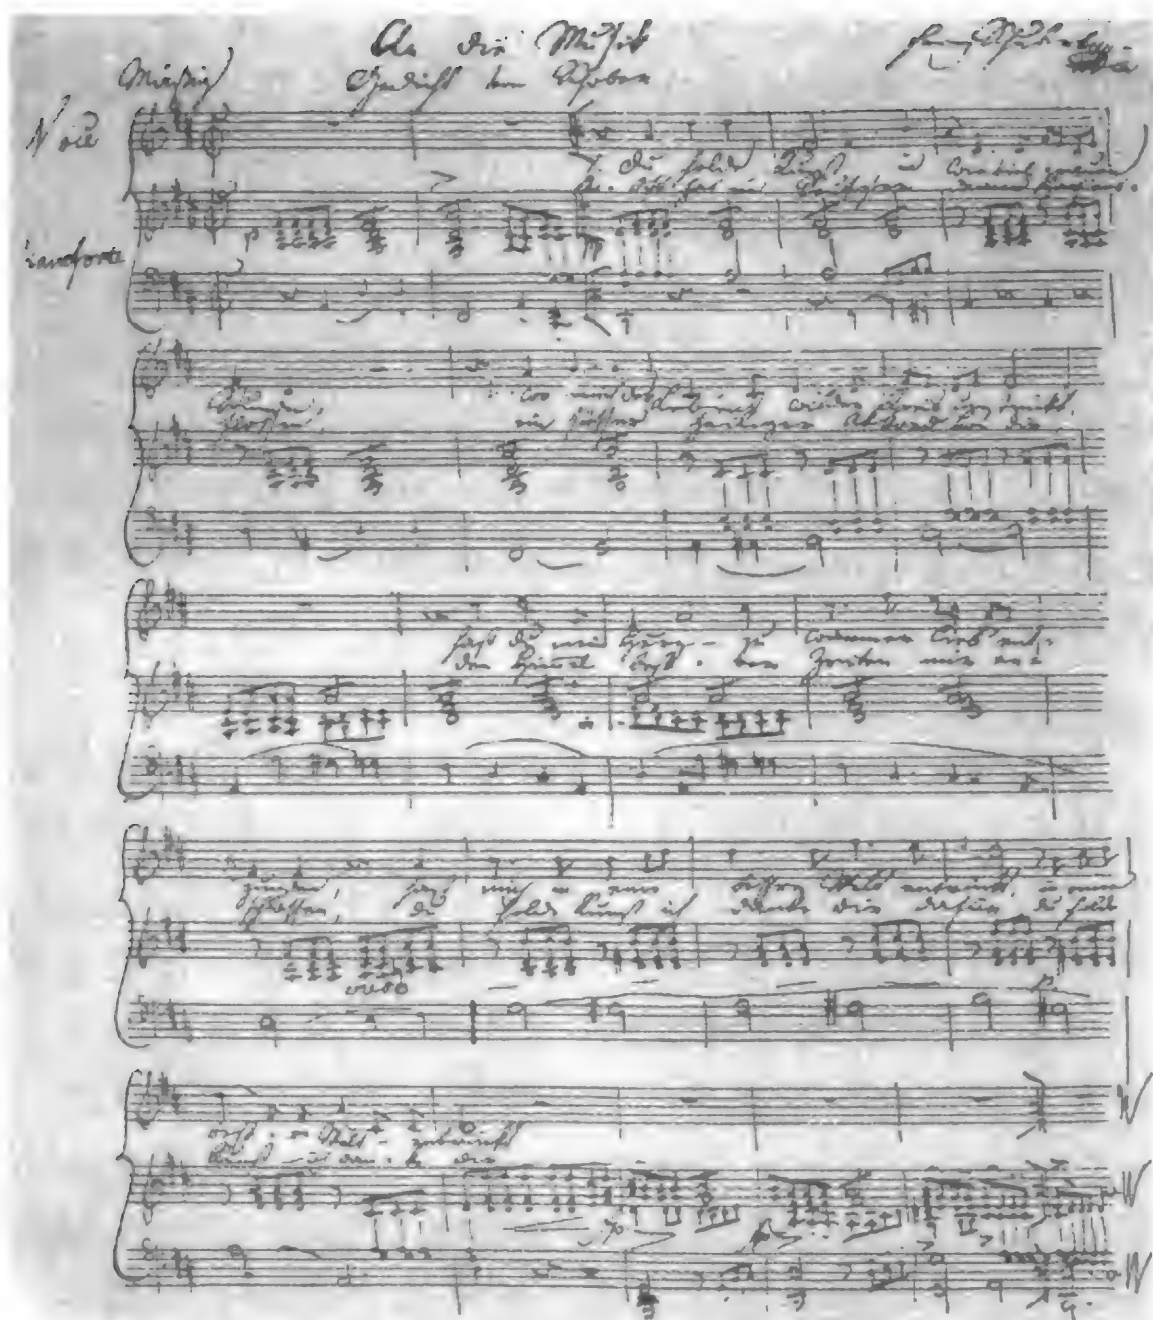 An die Musik
Franz Schubert
Mäßig
Gedicht von Schober
Voce
Pianoforte
Du holde Kunst in wieviel grauen
hat ein Seufzer, deiner
Stunden, wo mich des Lebens wilder Kreis um strickt,
flossen, ein süßer heiliger Akkord von dir
hast du mein Herz - zu warmer Lieb ent-
den Himmel beß - rer Zeiten mir er-
zunden, hast mich in eine beßre Welt entrückt, in eine
schlossen, du holde Kunst ich danke dir dafür, du holde
beß - re Welt - entrückt
Kunst ich dan - ke dir